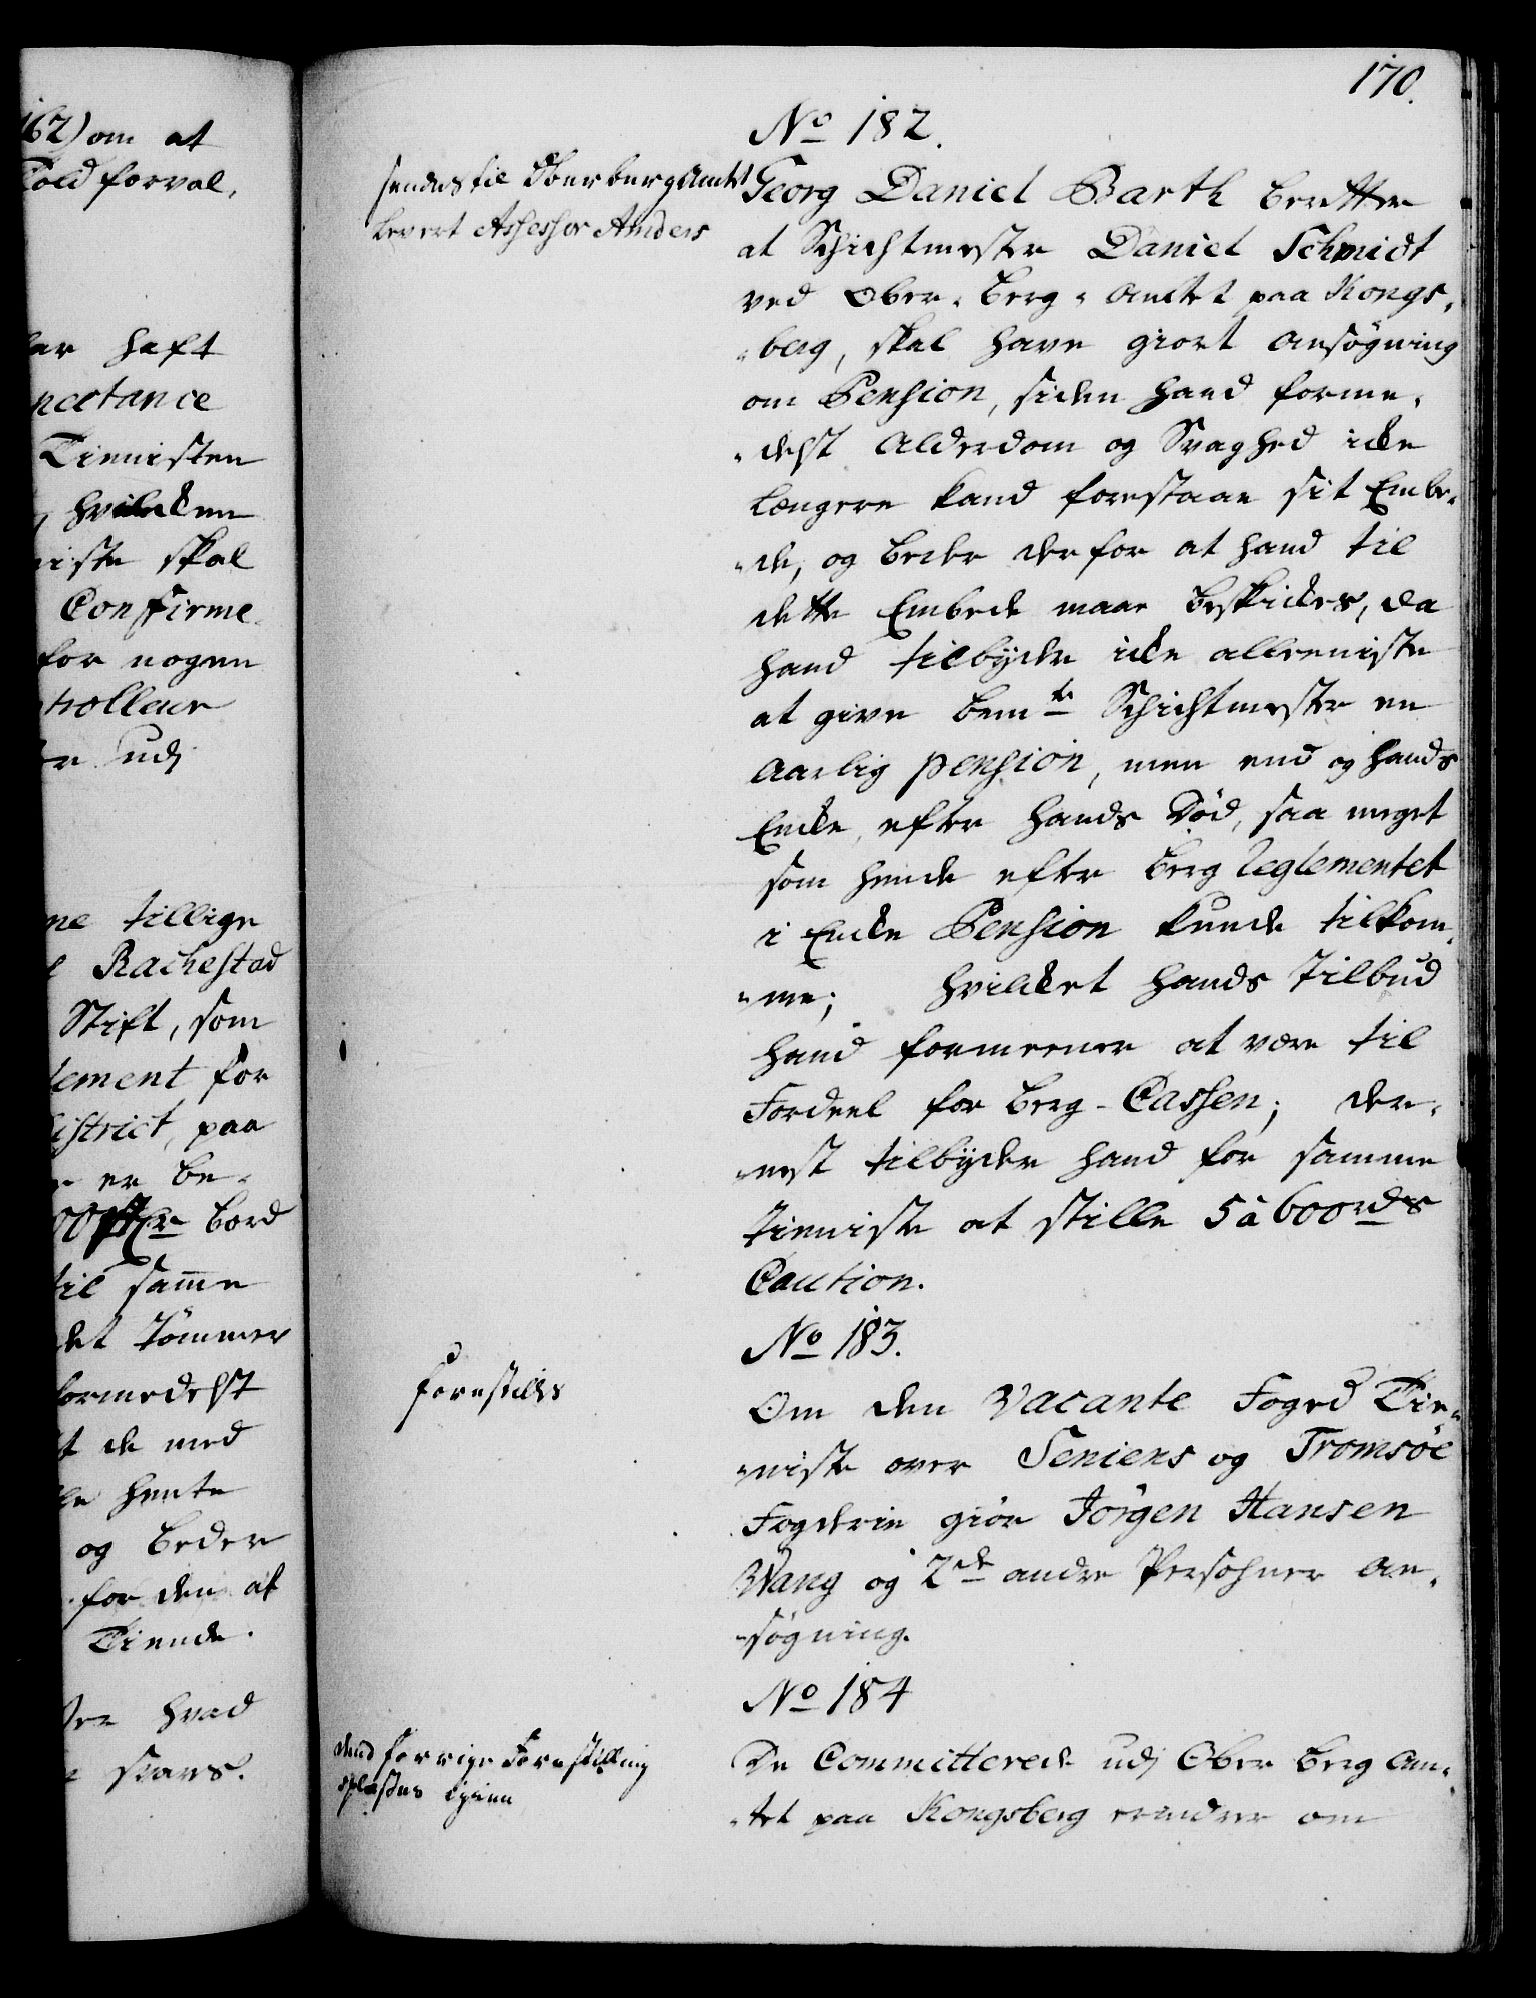 162) om at
Told forval,
har haft
pectance
Tienisten
, hvilcken
niste skal
Confirme
for nogen
trolleur
er udj
ne tillige
Rachestad
Stift, som
lement for
istrict, paa
er be-
00 bord
til samme
det Tömmer
formedelst
t de med
le hente
og beder
for den at
Tiende.
hvad
svars.
170.
No 182.
sendes til Oberbergamtet
levert Assessor Anders
Georg Daniel Barth beretter
at Schichtmester Daniel Schmidt
ved Ober-Berg-Amtet paa Kongs-
-berg, skal have giort ansøgning
om Pension, siden hand forme-
-delst Alderdom og Svaghed icke
længere kand forestaae sit Embe-
-de, og beder derfor at hand til
dette Embede maae beskickes, da
hand tilbyder icke alleeniste
at give bemte Schichtmester en
aarlig pension, men end og hands
Encke, efter hands Död, saa meget
som hende efter Berg Reglementet
i Encke Pension kunde tilkom-
-me; hvilcket hands Tilbud
hand formeener at være til
Fordeel for Berg-Cassen; der-
-nest tilbyder hand for samme
tieniste at stille 5 à 600 rds
Caution.
No 183.
forestilles
Om den Vacante Foged Tie-
-niste over Seniens og Tromsöe
Fogderie giör Jörgen Hansen
Wang og 2de andre Persohner an-
-søgning.
No 184
dend forrige Forestilling
igien
De Committerede udj Ober Berg Am-
-tet paa Kongsberg erindrer om